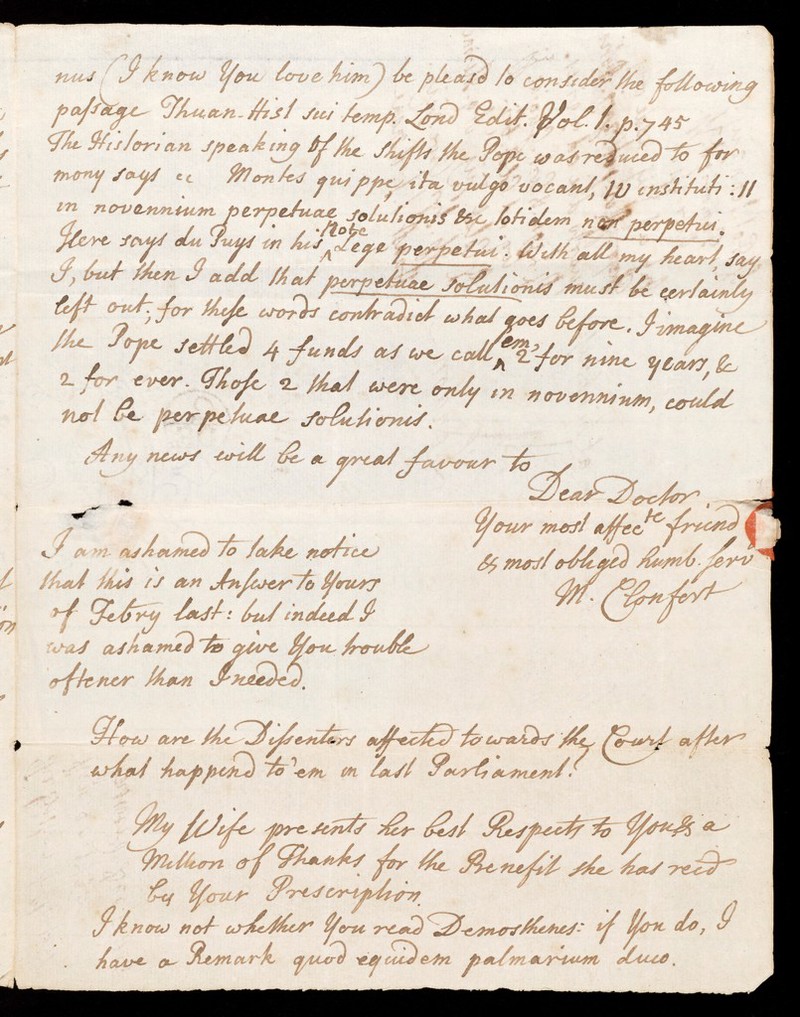 nus (I know You love him) be pleasd to consider the following
passage Thuan. Hist sui temp. Lond Edit. Vol. 1. p. 745
The Historian speaking of the Shifts the Pope was reduced to for
mony says Montes quippe, ita vulgo vocant, IV instituti: II
in novennium perpetuae solutionis &c totidem non perpetui.
Here says du Puys in his Note Lege perpetui. With all my heart, say
I, but then I add that perpetuae solutionis must be certainly
left out; for these words contradict what goes before. I imagine
the Pope settled 4 funds as we call 'em, 2 for nine years, &
2 for ever. Those 2 that were only in novennium, could
not be perpetuae solutionis.
Any news will be a great favour to
Dear Doctor
Your most affecte friend
& most obliged humb. serv
M. Clonfert
I am ashamed to take notice
that this is an Answer to Yours
of Febry last: but indeed I
was ashamed to give You trouble
oftener than I needed.
How are the Dissenters affected towards the Court after
what happend to 'em in last Parliament?
My Wife presents her best Respects to You & a
Million of Thanks for the Benefit she has recd
by Your Prescription.
I know not whether You read Demosthenes: if You do, I
have a Remark quod equidem palmarium duco.